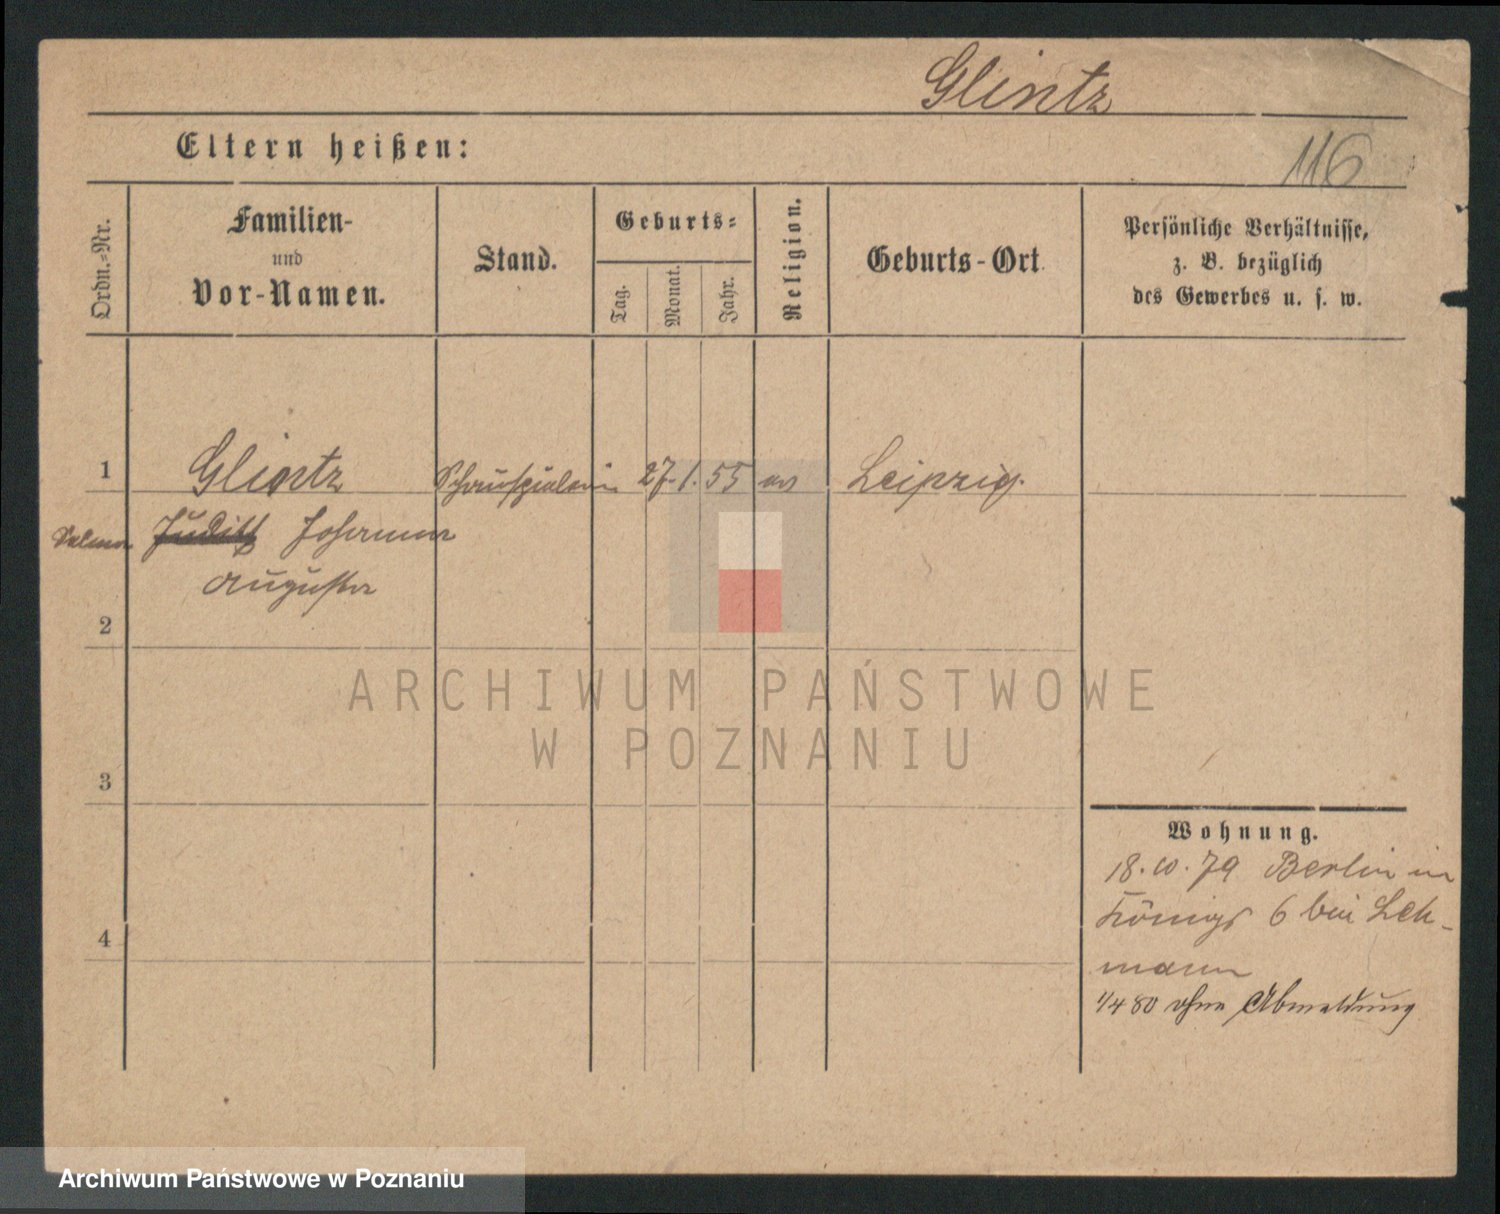 Glintz
Eltern heißen:
116
Ordn.-Nr.
Familien-
und
Vor-Namen.
Stand.
Geburts-
Tag.
Monat.
Jahr.
Religion.
Geburts-Ort
Persönliche Verhältnisse,
z. B. bezüglich
des Gewerbes u. s. w.
1 Glintz Schauspielerin 27. 1. 55 ev Leipzig.
Judith Johanna
Augusta
2
ARCHIWUM PAŃSTWOWE
W POZNANIU
3
4
Wohnung.
18.10.79 Berlin in
Königs 6 bei Leh-
mann
1/4 80 ohne Abmeldung
Archiwum Państwowe w Poznaniu